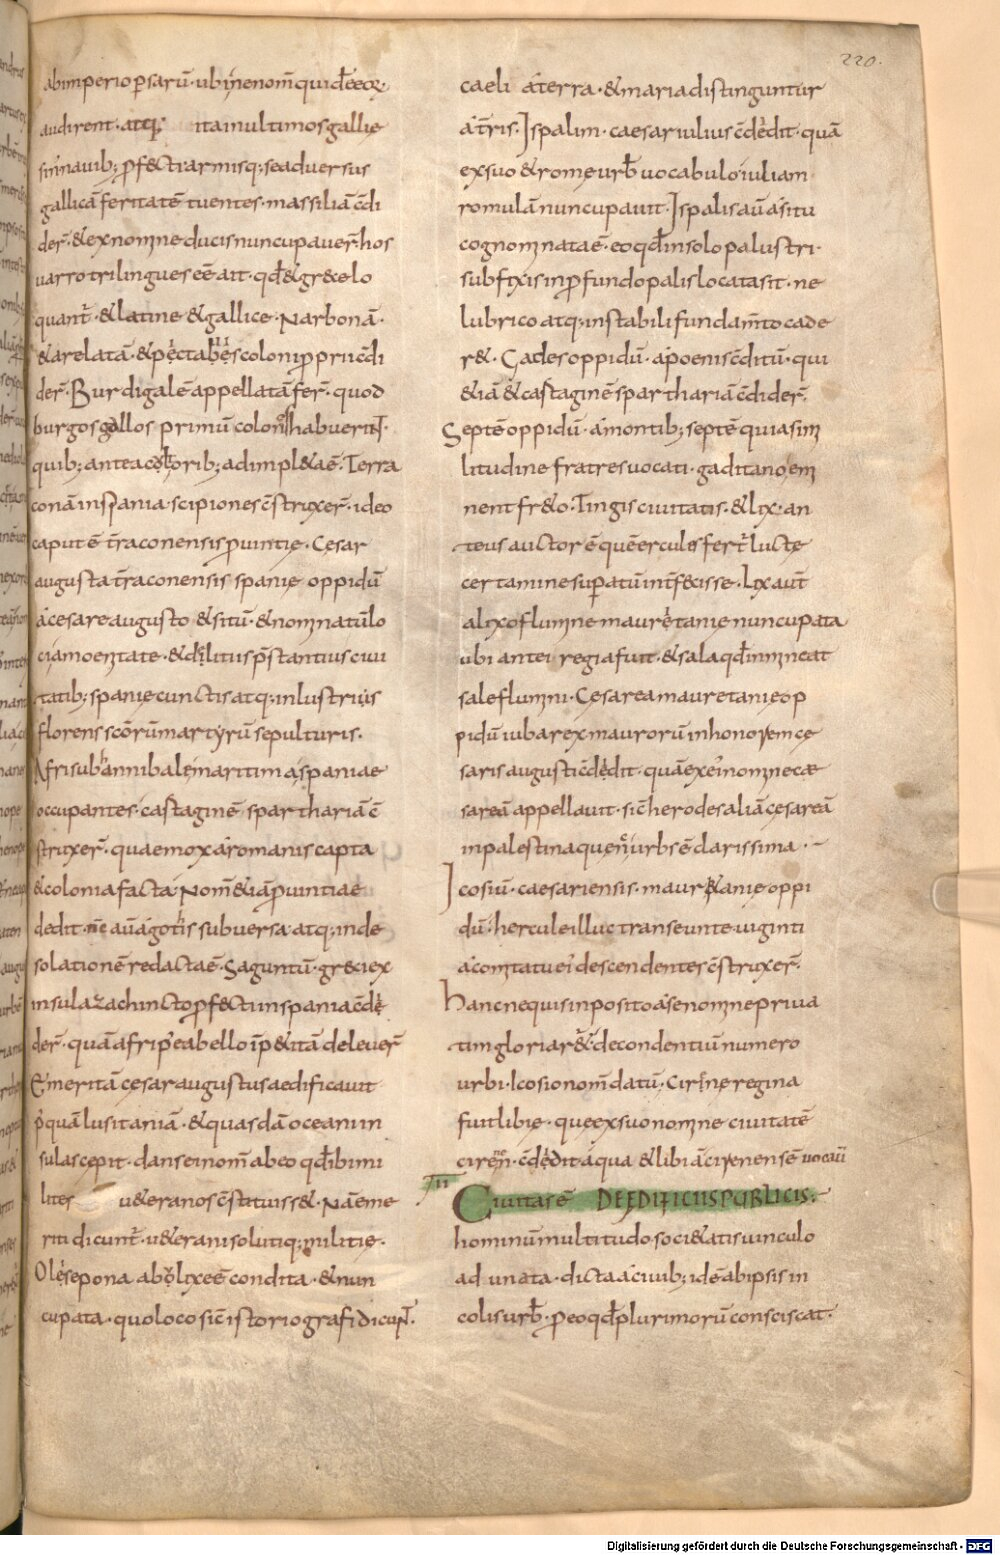 220.
abimperio psarū · ubi nenom̄ quid̄e eoꝝ
audirent · atq; ita inultimosgallię
sin̄navib; p̱fectiarmisq; seadversus
gallicā feritatē tuentes · massiliā c̄di
der̄ · &exnomine ducis nuncupaver̄ hos
varro trilingues eē ait · qd̄ &gr&ce lo
quant̄ · &latine &gallice · Narbonā ·
&arelatā · &pectabēs coloni p̱prii c̄di
der̄ · Burdigalē appellatā fer̄ · quod
burgos gallos primū colonos habuerit ·
quib; antea cultorib; adimpl&a ē · Terra
conā inspania · scipiones c̄struxer̄ · ideo
caput ē t̄raconensis p̱vintię · Cesar
augusta t̄raconensis spanię oppidū
a cesare augusto &sitū · &nominatū lo
ci amoenitate · &dilitiis p̄stantius civi
tatib; spanię cunctis atq; inlustrius
florens sc̄orū martyrū sepulturis ·
Afri sub annibale maritima spaniae
occupantes · castaginē sparthariā c̄
struxer̄ · quae mox a romanis capta
&colonia facta · Nom̄ &iā p̱vintiae
dedit · nē aū a gotis subversa · atq; in de
solationē redacta ē · Saguntū · greci ex
insula zachincto p̱fecti inspania c̄de
der̄ · quā afri p̄ea bello īp&itā delever̄
Emeritā cesar augustus aedificavit
p̄quā lusitaniā · &quasdā oceani in
sulas cepit · dans ei nom̄ ab eo qd̄ ibi mi
lites v&eranos c̄stituiss& · Nā eme
riti dicunt̄ · v&erani solutiq; militię ·
Olesepona ab olixe ē condita · &nun
cupata · quo loco sic̄ istoriografi dicunt̄ ·
caeli a terra · &maria distinguntur
a t̄ris · Ispalim · caesar iulius c̄dedit · quā
ex suo &rome urb̄ vocabulo iuliam
romulā nuncupavit · Ispalis aū a situ
cognominata ē · eo qd̄ in solo palustri ·
subfixis in p̱fundo palis locata sit · ne
lubrico atq; instabili fundam̄to cade
r& · Gades oppidū · a poenis c̄ditū · qui
&iā &castaginē sparthariā c̄dider̄ ·
Septē oppidū · a montib; septē qui a sim
litudine fratres vocati · gaditano em
nent fr&o · Tingis civitatis · &lix · an
teus auctor ē quē ercules fert̄ lucte
certamine sup̱atū int̄fecisse · Lix aut̄
a lixo flumine mauretanie nuncupata
ubi antei regia fuit · &sala qd̄ inmineat
sale flumini · Cesarea mauretanie op
pidū iuba rex maurorū in honorem ce
saris augusti c̄dedit · quā ex ei nomine cæ
sareā appellavit · sic̄ herodes aliā cesareā
in palestina que n̄c urbs ē clarissima ·
Icosiū · caesariensis · maur&anię oppi
dū · hercule illuc transeunte viginti
a comitatu ei descendentes c̄struxer̄ ·
hanc ne quis inposito a se nomine priva
tim gloriar& · de condentiū numero
urbi Icosio nom̄ datū · Cirene regina
fuit libię · quę ex suo nomine civitatē
ciren̄ · c̄dedit · a qua &libiā cirenensē vocavi
II
Civitas ē DE EDIFICIIS PUBLICIS ·
hominū multitudo soci&atis vinculo
adunata · dicta a civib; id ē ab ipsis in
colis urb̄ · p̱ eo qd̄ plurimorū consciscat ·
Digitalisierung gefördert durch die Deutsche Forschungsgemeinschaft - DFG